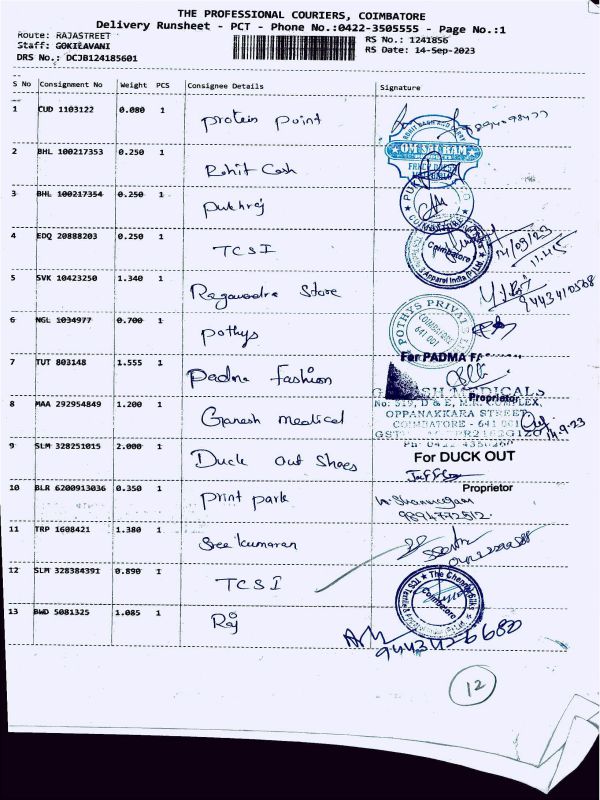 THE PROFESSIONAL COURIERS, COIMBATORE
Delivery Runsheet - PCT - Phone No.:0422-3505555 - Page No.:1
Route: RAJASTREET
RS No.: 1241856
Staff: GOKILAVANI
RS Date: 14-Sep-2023
DRS No.: DCJB124185601
S No Consignment No Weight PCS Consignee Details Signature
1 CUD 1103122 0.080 1 protein point
2 BHL 100217353 0.250 1 Rohit Cash
OM SAI RAM
3 BHL 100217354 0.250 1 pukhraj
4 EDQ 20888203 0.250 1 TCSI
Coimbatore
Apparel India (P) Ltd
14/09/23
11.45
5 SVK 10423250 1.340 1 Store
9443410508
6 NGL 1034977 0.700 1 pothys
POTHYS PRIVA
COIMBATORE
641 001
7 TUT 803148 1.555 1 Padma fashion
For PADMA
Proprietor
8 MAA 292954849 1.200 1 Ganesh medical
SH MEDICALS
No: 319, D & E, COMPLEX,
OPPANAKKARA STREET
COIMBATORE - 641 001
14.9.23
9 SLM 328251015 2.000 1 Duck out Shoes
For DUCK OUT
Proprietor
10 BLR 6200913036 0.350 1 print park
9894772512
11 TRP 1608421 1.380 1 Sree kumaran
12 SLM 328384391 0.890 1 TCSI
The Chennai Silks
Coimbatore
13 BWD 5081325 1.085 1 Raj
12